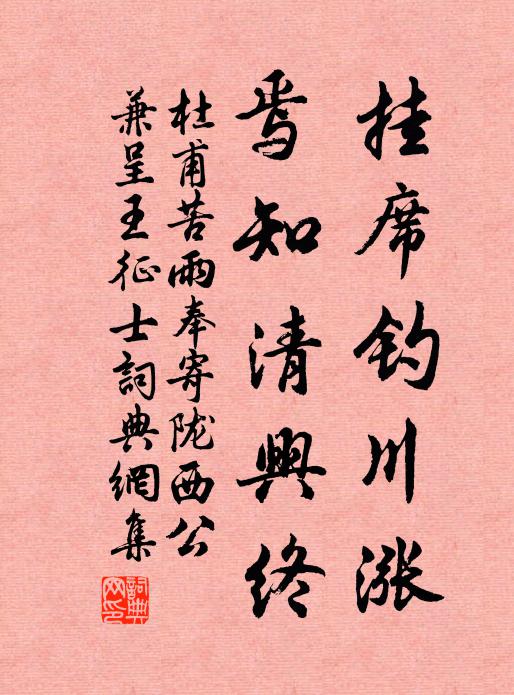 挂席钓川涨
焉知清興终
杜甫苦雨奉寄陇西公
兼呈王征士詞典網集
詞典
网印